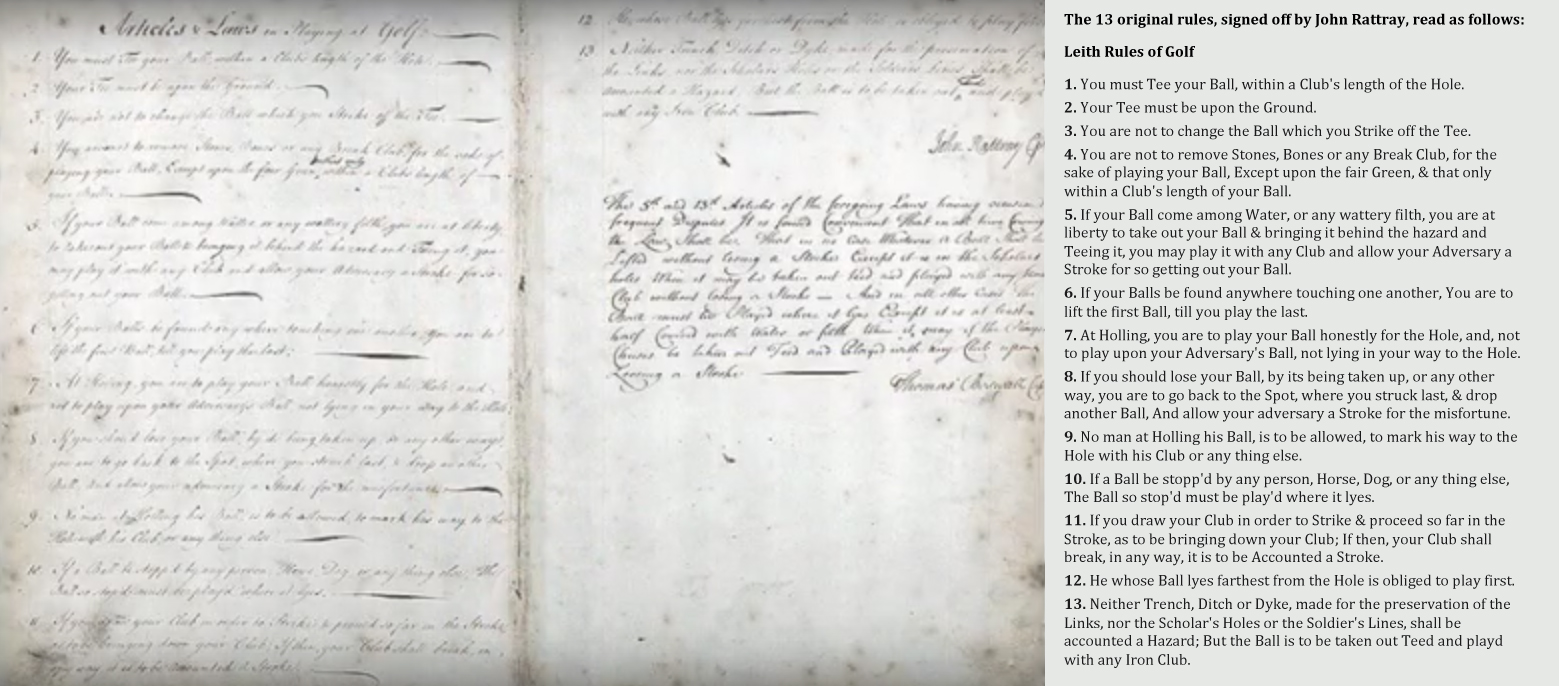 Articles & Laws in Playing at Golf.
1. You must Tee your Ball within a Clubs length of the Hole.
2. Your Tee must be upon the Ground.
3. You are not to change the Ball which you Strike of the Tee.
4. You are not to remove Stones, Bones or any Break Club, for the sake of
playing your Ball, Except upon the fair Green, & that only within a Clubs length of
your Ball.
5. If your Ball come among Water or any wattery filth, you are at liberty
to take out your Ball & bringing it behind the hazard and Teeing it, you
may play it with any Club and allow your Adversary a Stroke for so
getting out your Ball.
6. If your Balls be found any where touching one another, You are to
lift the first Ball, till you play the last.
7. At Holling, you are to play your Ball honestly for the Hole, and
not to play upon your Adversarys Ball, not lying in your way to the Hole.
8. If you should lose your Ball, by its being taken up, or any other way,
you are to go back to the Spot, where you struck last, & drop another
Ball, And allow your adversary a Stroke for the misfortune.
9. No man at Holling his Ball, is to be allowed, to mark his way to the
Hole with his Club or any thing else.
10. If a Ball be stopp'd by any person, Horse, Dog or any thing else, The
Ball so stop'd must be play'd where it lyes.
11. If you draw your Club in order to Strike & proceed so far in the Stroke
as to be bringing down your Club; If then, your Club shall break, in
any way, it is to be Accounted a Stroke.
12. He whose Ball lyes farthest from the Hole is obliged to play
13. Neither Trench, Ditch or Dyke, made for the preservation of
the Links, nor the Scholars Holes or the Soldiers Lines, Shall be
accounted a Hazard, But the Ball is to be taken out, Teed and play
with any Iron Club.
John Rattray Cp
The 5th and 13th Articles of the foregoing Laws having occasion
frequent Disputes It is found Convenient That in all time Coming
the Law Shall be, That in no Case Whatever a Ball Shall be
Lifted without losing a Stroke Except it is in the Scholars
holes When it may be taken out teed and played with any Iron
Club without losing a Stroke - And in all other Cases The
Ball must be Played where it lyes Except it is at least
half Covered with Water or filth When it may if the Player
Chuses be taken out Teed and Played with any Club upon
Loosing a Stroke
Thomas Boswall Cp
The 13 original rules, signed off by John Rattray, read as follows:
Leith Rules of Golf
1. You must Tee your Ball, within a Club's length of the Hole.
2. Your Tee must be upon the Ground.
3. You are not to change the Ball which you Strike off the Tee.
4. You are not to remove Stones, Bones or any Break Club, for the
sake of playing your Ball, Except upon the fair Green, & that only
within a Club's length of your Ball.
5. If your Ball come among Water, or any wattery filth, you are at
liberty to take out your Ball & bringing it behind the hazard and
Teeing it, you may play it with any Club and allow your Adversary a
Stroke for so getting out your Ball.
6. If your Balls be found anywhere touching one another, You are to
lift the first Ball, till you play the last.
7. At Holling, you are to play your Ball honestly for the Hole, and, not
to play upon your Adversary's Ball, not lying in your way to the Hole.
8. If you should lose your Ball, by its being taken up, or any other
way, you are to go back to the Spot, where you struck last, & drop
another Ball, And allow your adversary a Stroke for the misfortune.
9. No man at Holling his Ball, is to be allowed, to mark his way to the
Hole with his Club or any thing else.
10. If a Ball be stopp'd by any person, Horse, Dog, or any thing else,
The Ball so stop'd must be play'd where it lyes.
11. If you draw your Club in order to Strike & proceed so far in the
Stroke, as to be bringing down your Club; If then, your Club shall
break, in any way, it is to be Accounted a Stroke.
12. He whose Ball lyes farthest from the Hole is obliged to play first.
13. Neither Trench, Ditch or Dyke, made for the preservation of the
Links, nor the Scholar's Holes or the Soldier's Lines, shall be
accounted a Hazard; But the Ball is to be taken out Teed and playd
with any Iron Club.